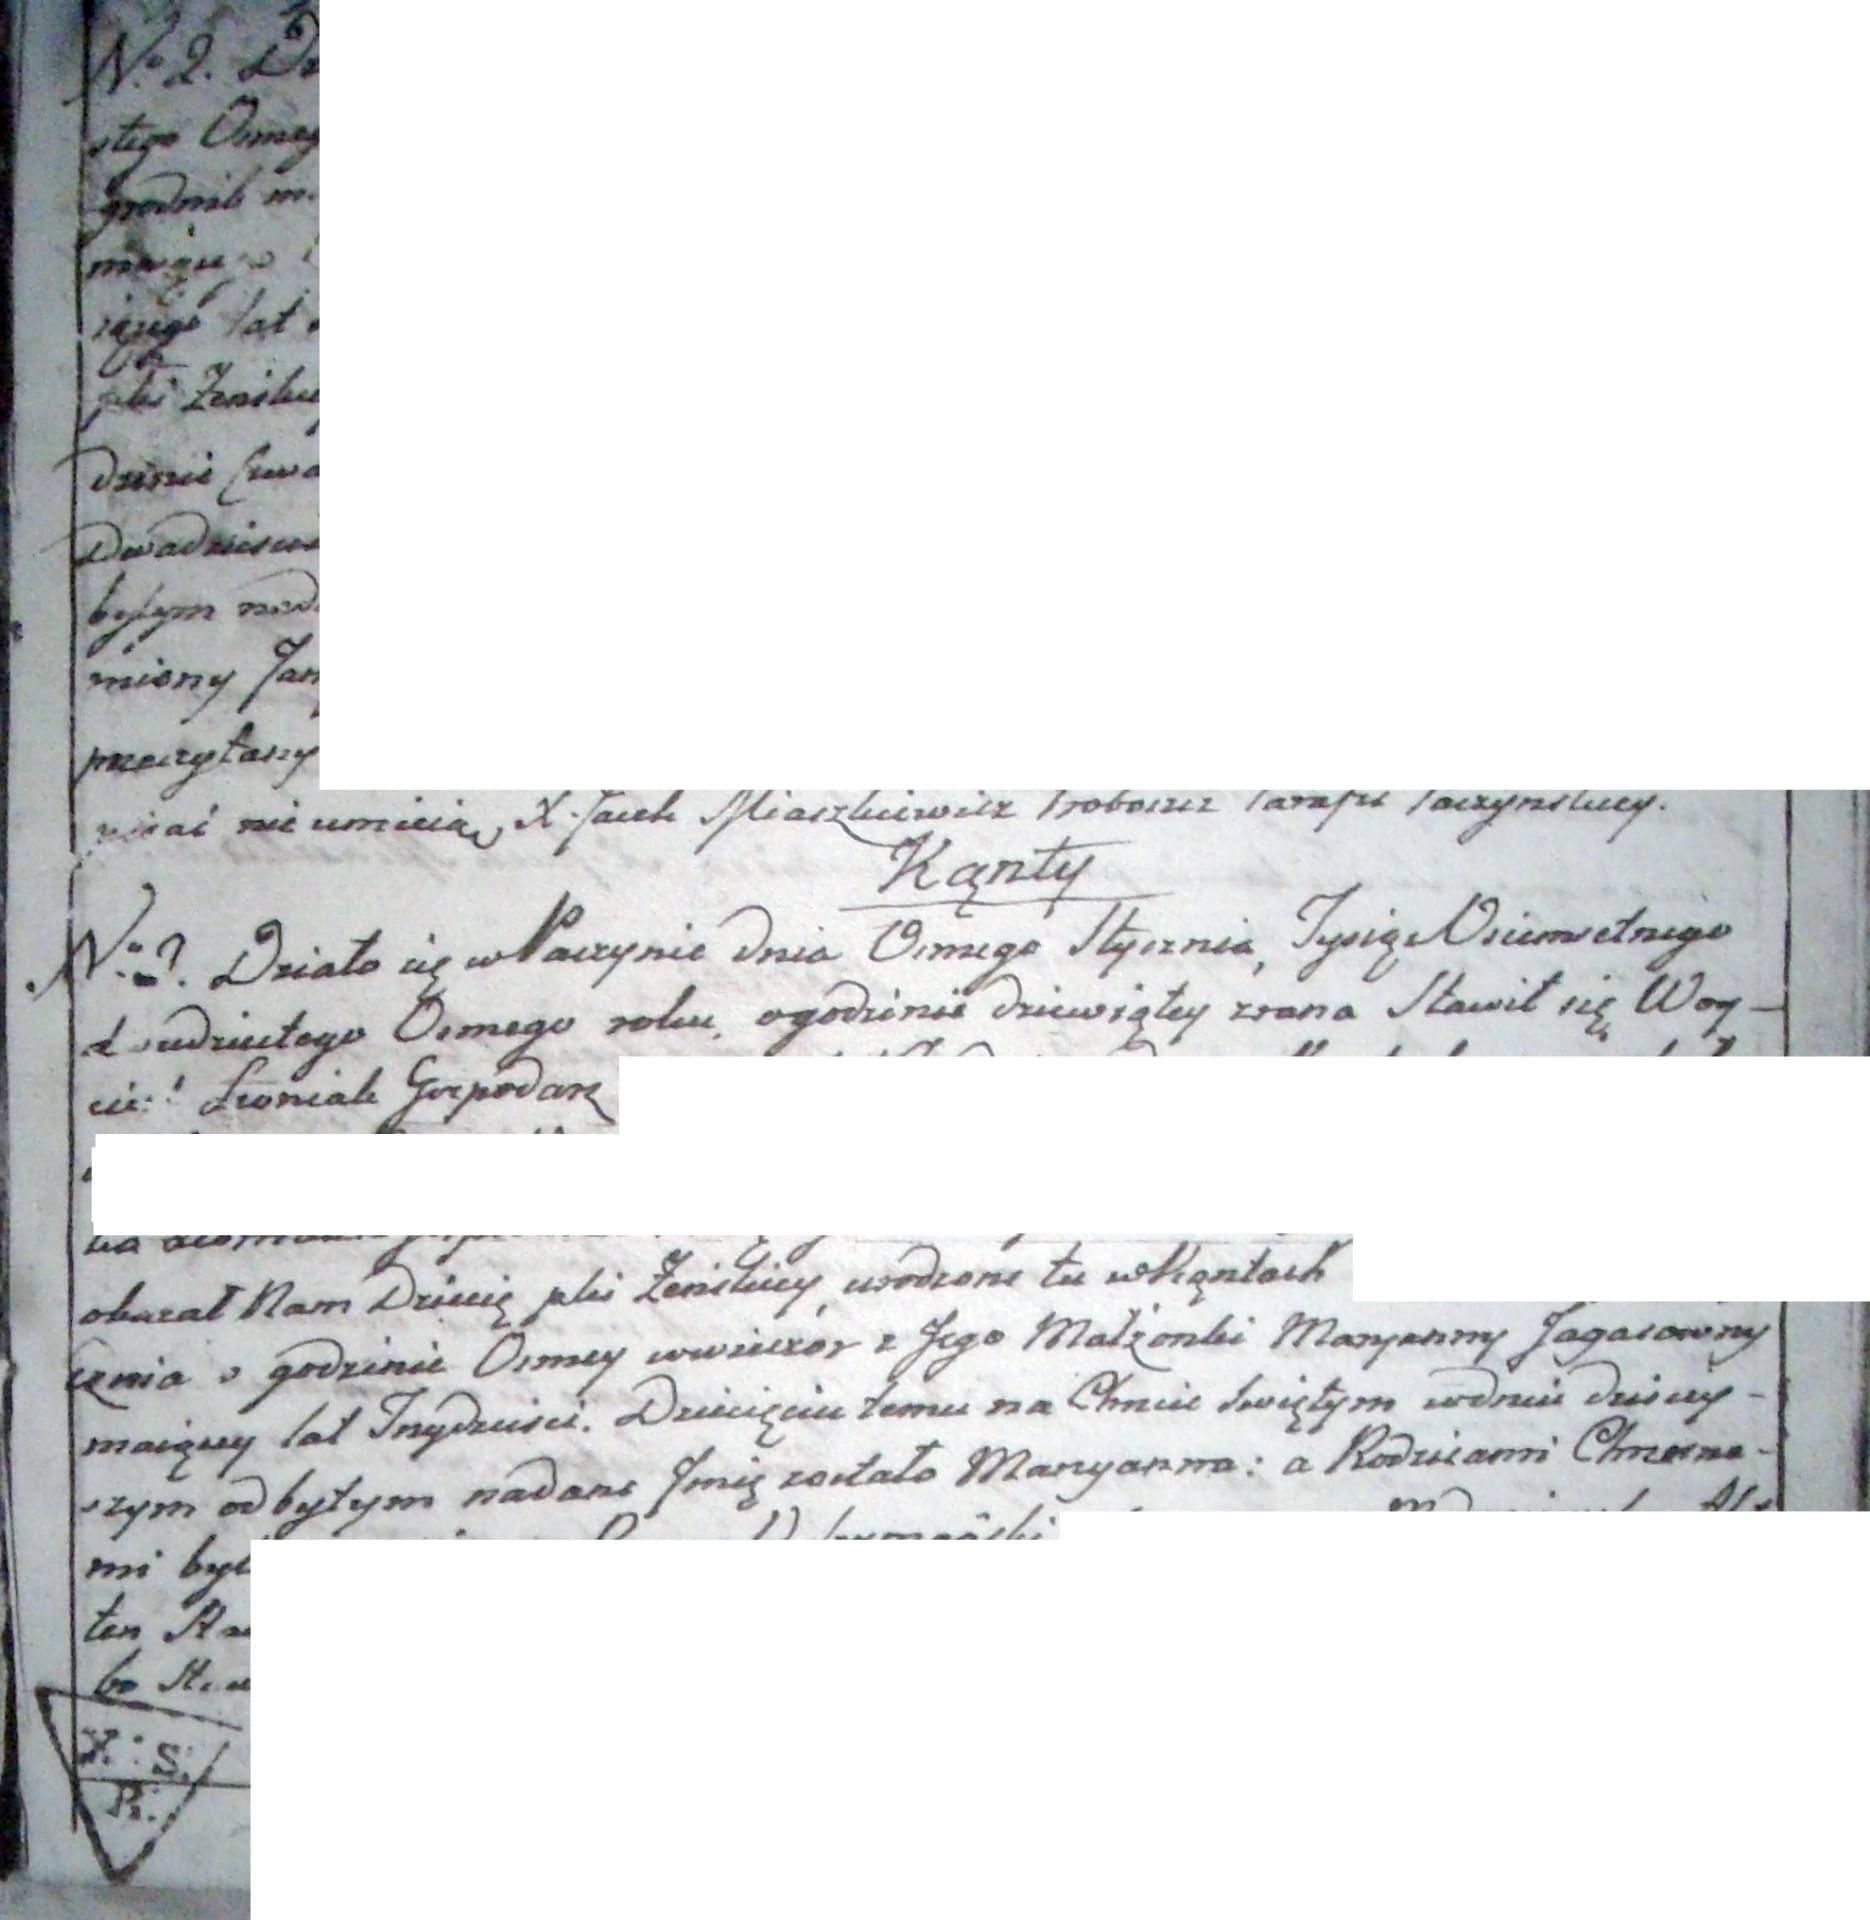 No 2. Dz
stego Osmeg
grodnik m
maiący
iącego lat
płci Żeńskiey
dzinie
Dwadziescia
bytym nad
miony Jan
przeczytany
pisać nie umieią, X. Jacek Miaszkiewicz Proboszcz Parafii Paczynskiey.
Kąnty
No 3. Działo się w Paczynie dnia Osmego Stycznia, Tysiąc Osiemsetnego
dwudziestego Osmego roku, o godzinie dziewiątey zrana Stawił się Woy-
cie: Gospodarz
okazał Nam Dziecię płci Żeńskiey, urodzone tu w Kąntach
cznia o godzinie Osmey wwieczór z Jego Małżonki Maryanny Jagasowny
maiącey lat Trzydzieści. Dziecięciu temu na Chrzcie świętym w dniu dzisiey-
szym odbytym nadane Jmię zostało Maryanna: a Rodzicami Chrzesne-
mi byl
ten
bo
X. S.
P.